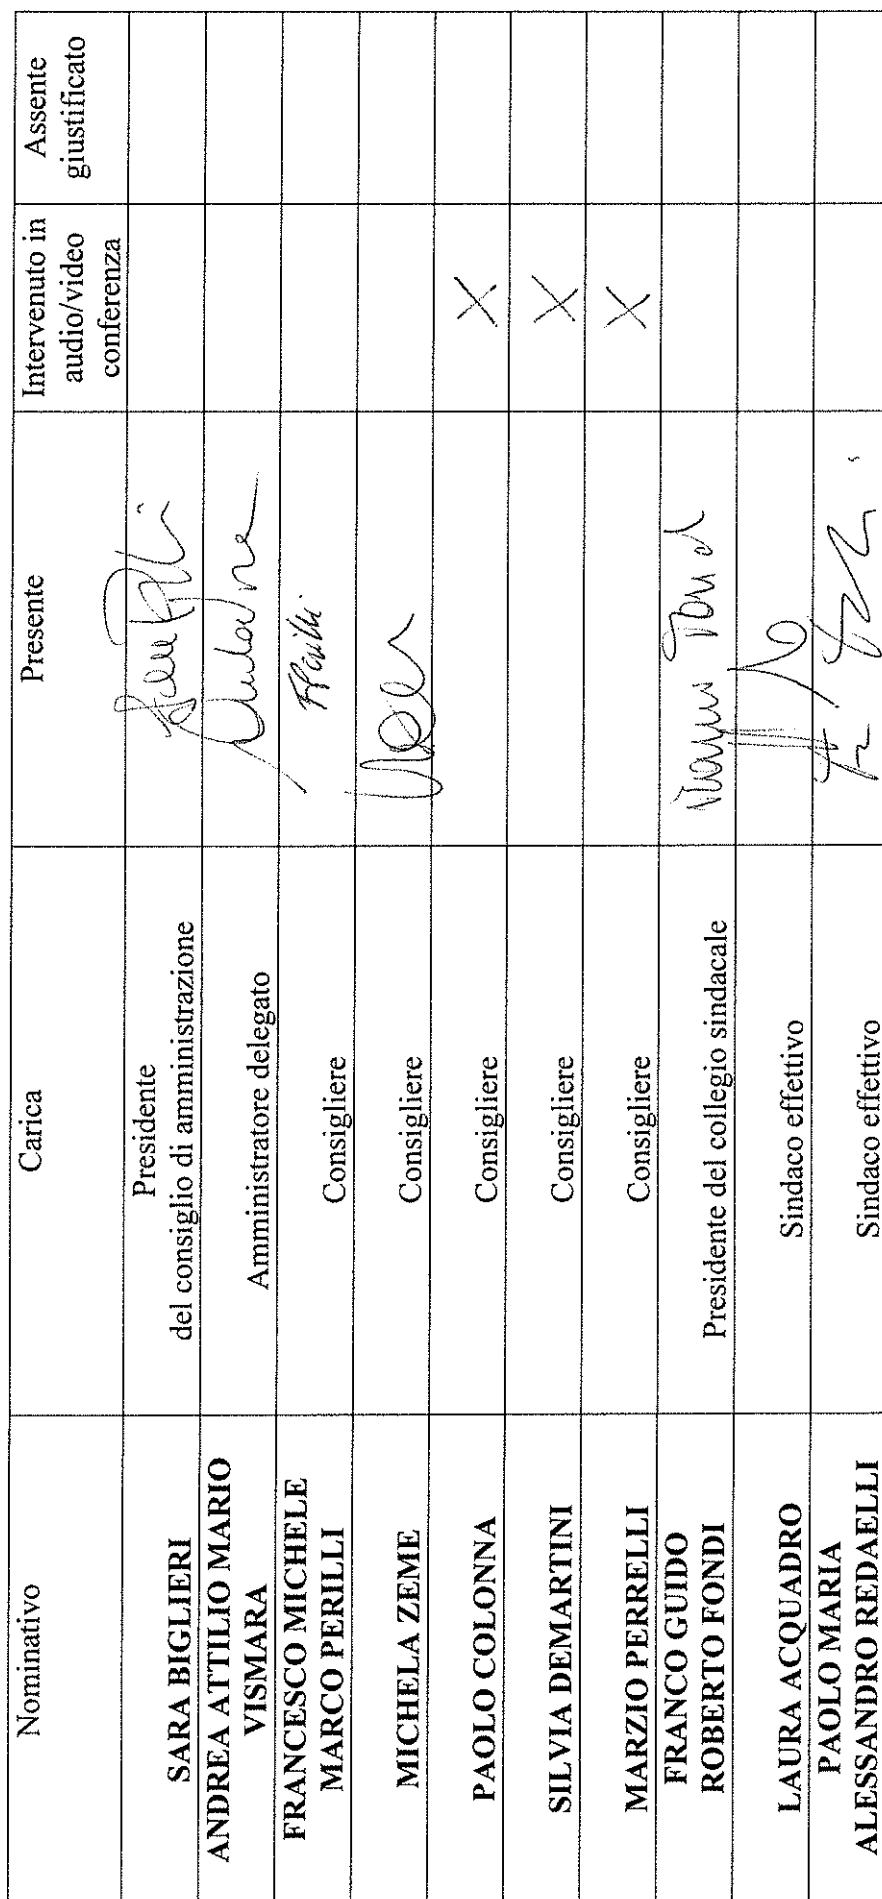 Nominativo
Carica
Presente
Intervenuto in
audio/video
conferenza
Assente
giustificato
SARA BIGLIERI
Presidente
del consiglio di amministrazione
ANDREA ATTILIO MARIO
VISMARA
Amministratore delegato
FRANCESCO MICHELE
MARCO PERILLI
Consigliere
MICHELA ZEME
Consigliere
PAOLO COLONNA
Consigliere
X
SILVIA DEMARTINI
Consigliere
X
MARZIO PERRELLI
Consigliere
X
FRANCO GUIDO
ROBERTO FONDI
Presidente del collegio sindacale
LAURA ACQUADRO
Sindaco effettivo
PAOLO MARIA
ALESSANDRO REDAELLI
Sindaco effettivo